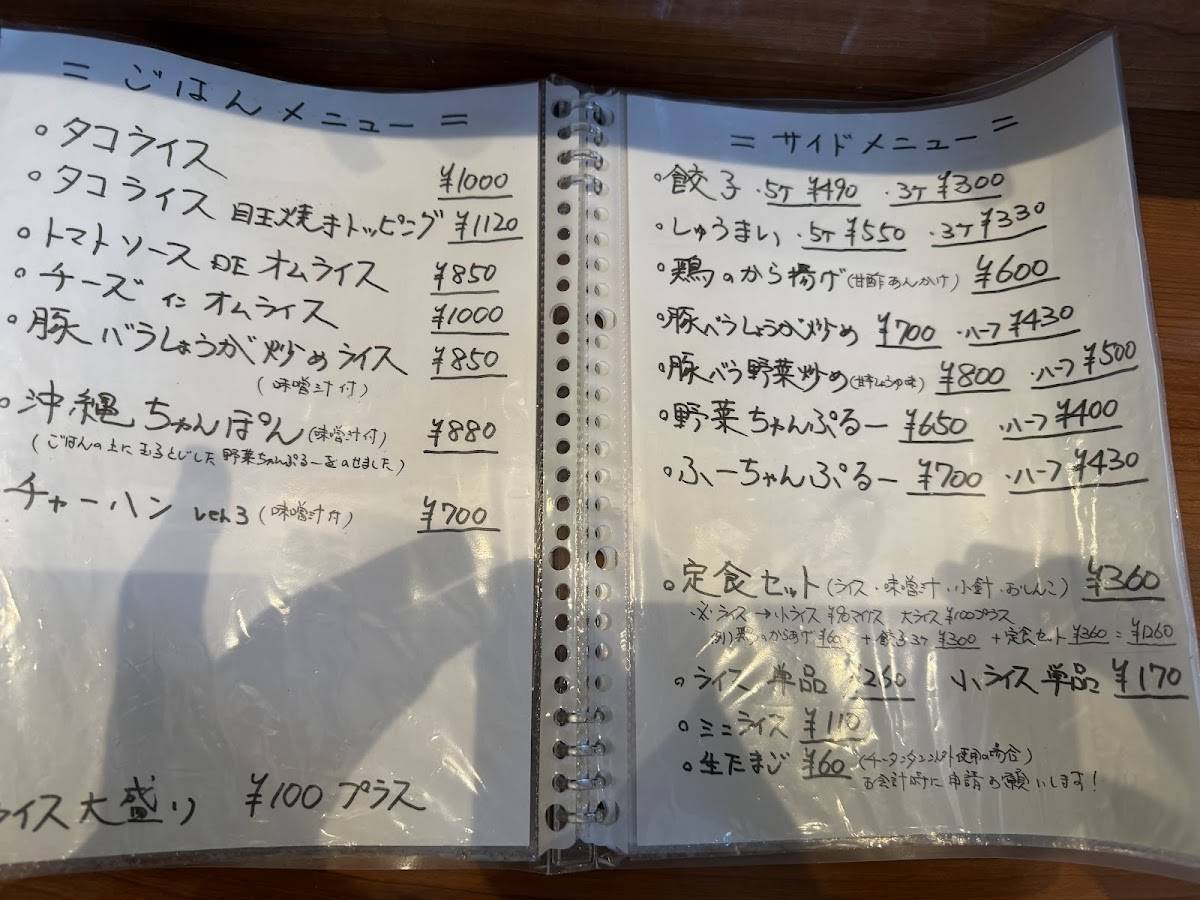 = ごはんメニュー =
。タコライス ¥1000
。タコライス 目玉焼きトッピング ¥1120
。トマトソース DE オムライス ¥850
。チーズ in オムライス ¥1000
。豚バラしょうが炒めライス ¥850
(味噌汁付)
。沖縄ちゃんぽん(味噌汁付) ¥880
(ごはんの上に玉子とじした野菜ちゃんぷるーをのせました)
チャーハン ver.3(味噌汁付) ¥700
ライス大盛り ¥100プラス
= サイドメニュー =
。餃子 ・5ケ ¥490 ・3ケ ¥300
。しゅうまい ・5ケ ¥550 ・3ケ ¥330
。鶏のから揚げ(甘酢あんかけ) ¥600
。豚バラしょうが炒め ¥700 ・ハーフ ¥430
。豚バラ野菜炒め(甘辛しょうゆ味) ¥800 ・ハーフ ¥500
。野菜ちゃんぷるー ¥650 ・ハーフ ¥400
。ふーちゃんぷるー ¥700 ・ハーフ ¥430
。定食セット(ライス・味噌汁・小針・おしんこ) ¥360
※ライス→小ライス ¥90マイナス 大ライス ¥100プラス
例)鶏のからあげ ¥600 + 餃子3ケ ¥300 + 定食セット ¥360 = ¥1260
。ライス単品 ¥260 小ライス単品 ¥170
。ミニライス ¥110
。生たまご ¥60 (チータンタン以外使用の場合)
お会計時に申請お願いします!